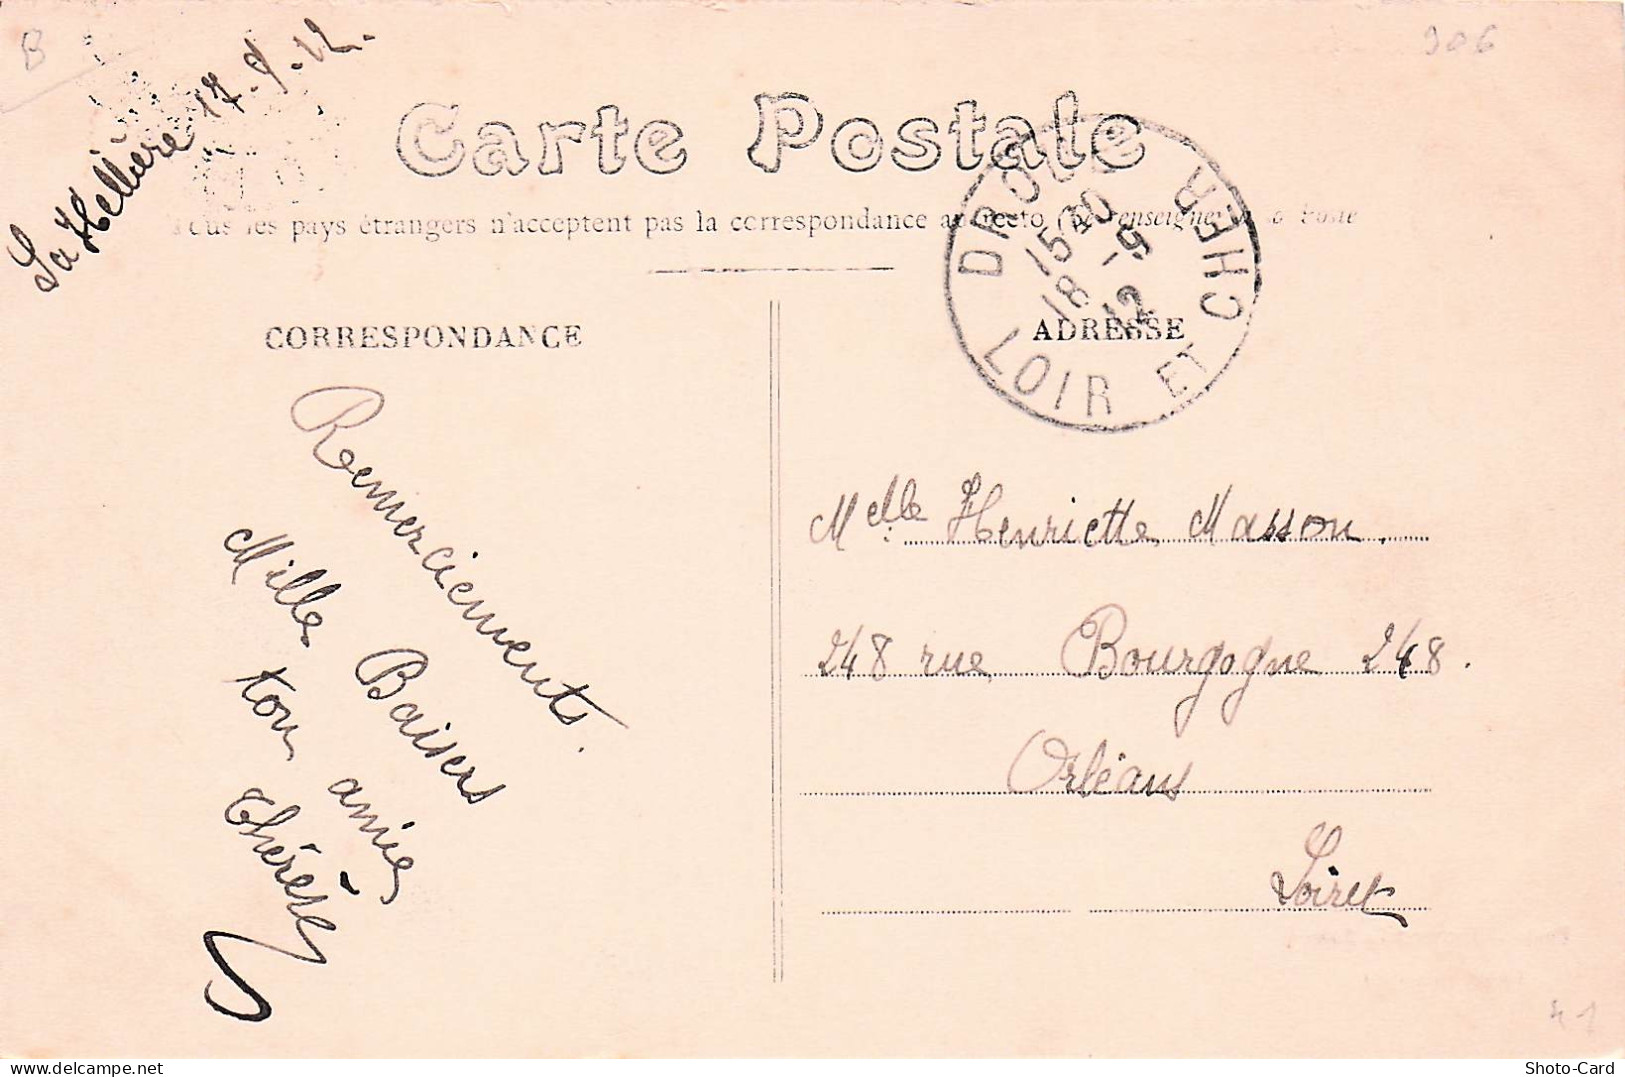 B
906
La Hellière 17-9-12.
Carte Postale
Tous les pays étrangers n'acceptent pas la correspondance au recto (Se renseigner à la Poste
DROUÉ
15 40
18 -9
12
LOIR ET CHER
CORRESPONDANCE
ADRESSE
Remerciements.
Mille Baisers
ton amie
Thérèse
Melle Henriette Masson.
248 rue Bourgogne 248.
Orléans
Loiret
41
Shoto-Card